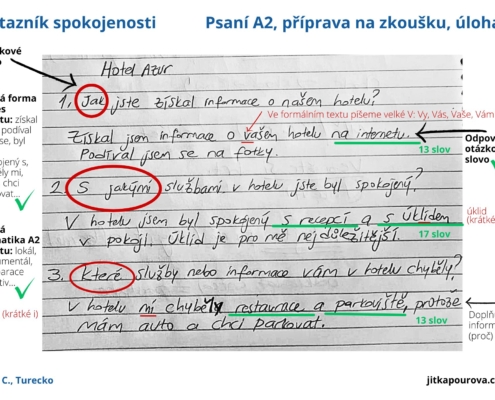 tazník spokojenosti
Psaní A2, příprava na zkoušku, úloha
kové
Hotel Azur
á forma
es
tu: získal
podíval
se, byl
1, Jak jste získal informace o našem hotelu?
Ve formálním textu píšeme velké V: Vy, Vás, Vaše, Vám
Získal jsem informace o vašem hotelu na internetu.
13 slov
Podíval jsem se na fotky.
Odpov
otázko
slovo
ojený s,
ěly mi,
chci
ovat...
2, S jakými službami v hotelu jste byl spokojený?
V hotelu jsem byl spokojený s recepcí a s úklidem
úklid
(krátké
v pokoji. Úklid je pro mě nejdůležitější.
17 slov
á
atika A2
tu: lokál,
umentál,
parace
tiv...
3. které služby nebo informace vám v hotelu chyběly?
v hotelu mi chyběly restaurace a parkoviště, protože
mám auto a chci parkovat.
13 slov
(krátké i)
Doplň
inform
(proč)
C., Turecko
jitkapourova.c